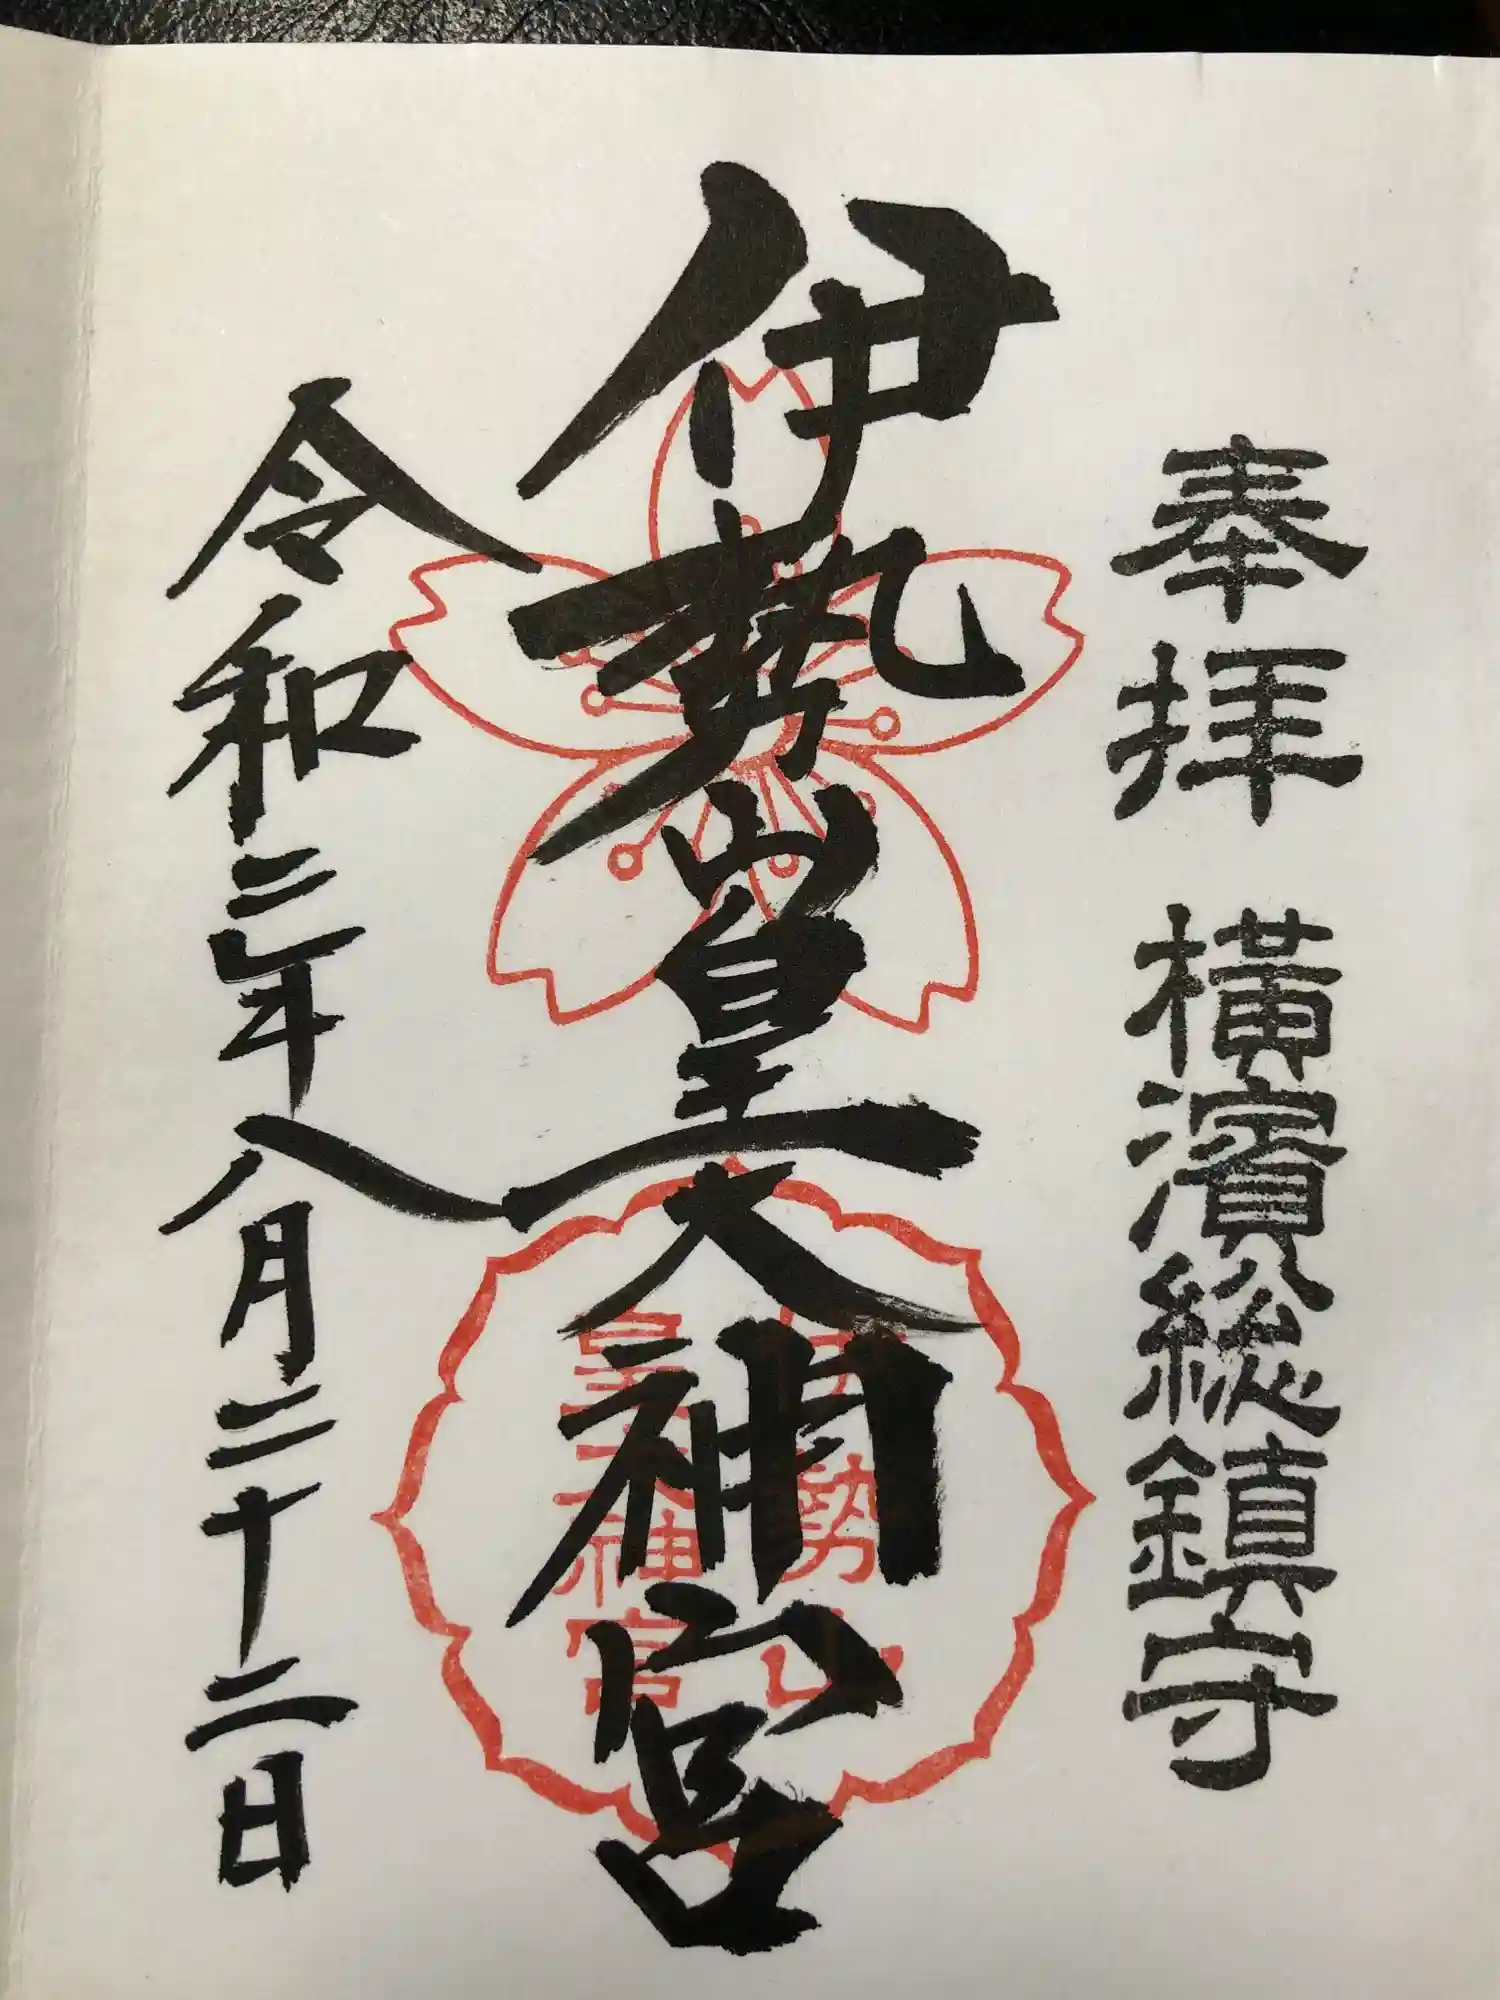 奉拝 横濱総鎮守
伊勢山皇大神宮
伊勢山
皇大神宮
令和二年八月二十二日